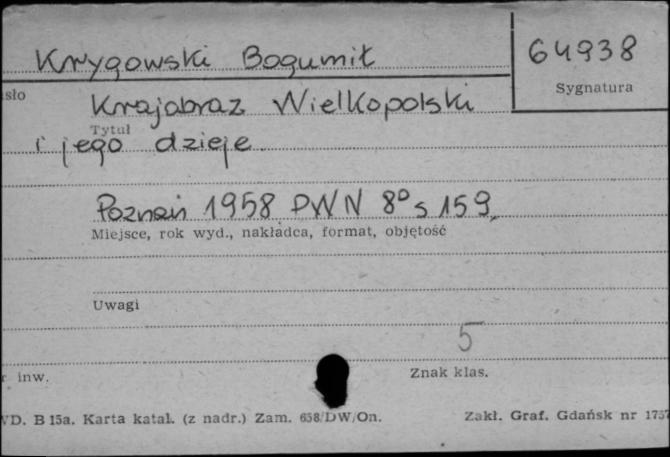 Krygowski Bogumił
64938
Sygnatura
sło
Krajobraz Wielkopolski
Tytuł
i jego dzieje
Poznań 1958 PWN 8° s 159
Miejsce, rok wyd., nakładca, format, objętość
Uwagi
5
r inw.
Znak klas.
VD. B 15a. Karta katal. (z nadr.) Zam. 658/DW/On.
Zakł. Graf. Gdańsk nr 1757